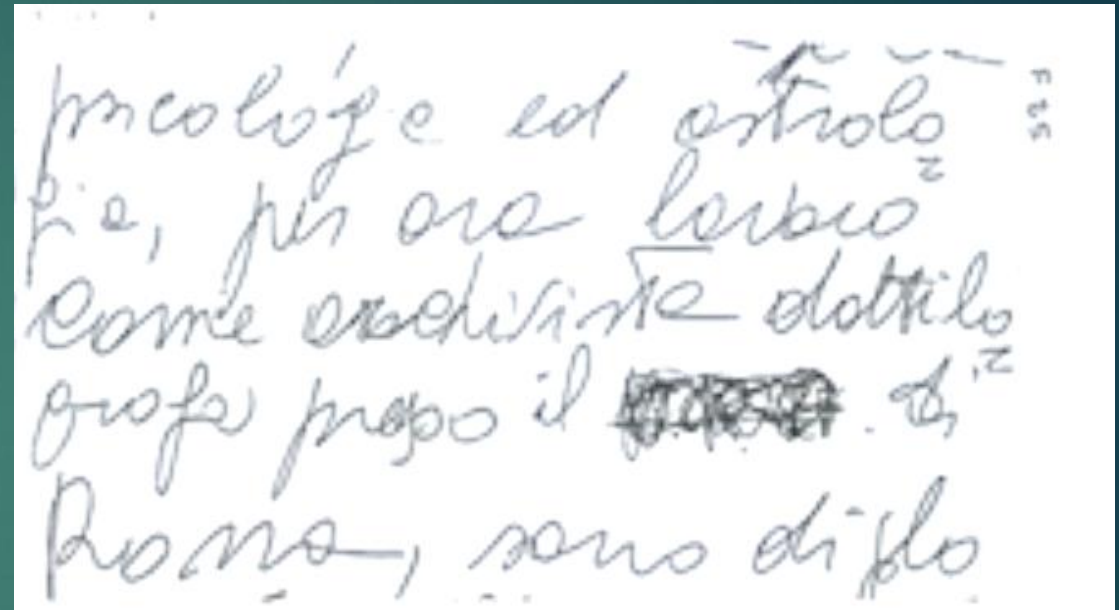 psicologia ed astrolo
gia, per ora lavoro
come archivista dattilo
grafo presso il . di
Roma, sono diplo